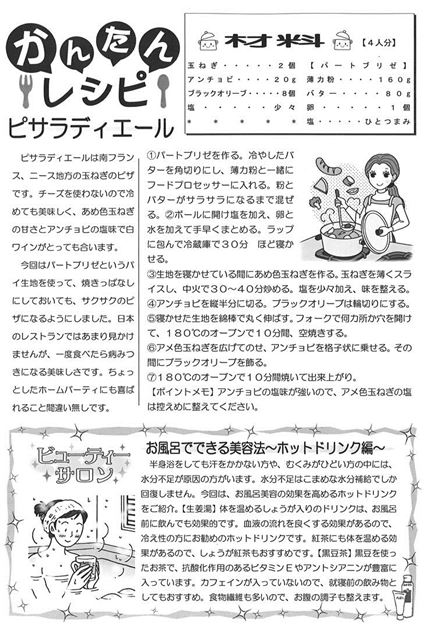 かんたん
レシピ
ピサラディエール
材料【4人分】
玉ねぎ・・・・・2個
アンチョビ・・・・20g
ブラックオリーブ・・・・8個
塩・・・・・・少々
＊ ＊ ＊ ＊ ＊
【パートブリゼ】
薄力粉・・・・160g
バター・・・・80g
卵・・・・・1個
塩・・・・・ひとつまみ
ピサラディエールは南フラン
ス、ニース地方の玉ねぎのピザ
です。チーズを使わないので冷
めても美味しく、あめ色玉ねぎ
の甘さとアンチョビの塩味で白
ワインがとっても合います。
今回はパートブリゼというパ
イ生地を使って、焼きっぱなし
にしておいても、サクサクのピ
ザになるようにしました。日本
のレストランではあまり見かけ
ませんが、一度食べたら病みつ
きになる美味しさです。ちょっ
としたホームパーティにも喜ば
れること間違い無しです。
①パートブリゼを作る。冷やしたバ
ターを角切りにし、薄力粉と一緒に
フードプロセッサーに入れる。粉と
バターがサラサラになるまで混ぜ
る。②ボールに開け塩を加え、卵と
水を加えて手早くまとめる。ラップ
に包んで冷蔵庫で30分 ほど寝か
せる。
③生地を寝かせている間にあめ色玉ねぎを作る。玉ねぎを薄くスラ
イスし、中火で30～40分炒める。塩を少々加え、味を整える。
④アンチョビを縦半分に切る。ブラックオリーブは輪切りにする。
⑤寝かせた生地を綿棒で丸く伸ばす。フォークで何カ所か穴を開け
て、180℃のオーブンで10分間、空焼きする。
⑥アメ色玉ねぎを広げてのせ、アンチョビを格子状に乗せる。その
間にブラックオリーブを飾る。
⑦180℃のオーブンで10分間焼いて出来上がり。
【ポイントメモ】アンチョビの塩味が強いので、アメ色玉ねぎの塩
は控えめに整えてください。
ビューティー
サロン
お風呂でできる美容法～ホットドリンク編～
半身浴をしても汗をかかない方や、むくみがひどい方の中には、
水分不足が原因の方がいます。水分不足はこまめな水分補給でしか
回復しません。今回は、お風呂美容の効果を高めるホットドリンク
をご紹介。【生姜湯】体を温めるしょうが入りのドリンクは、お風呂
前に飲んでも効果的です。血液の流れを良くする効果があるので、
冷え性の方にお勧めのホットドリンクです。紅茶にも体を温める効
果があるので、しょうが紅茶もおすすめです。【黒豆茶】黒豆を使っ
たお茶で、抗酸化作用のあるビタミンEやアントシアニンが豊富に
入っています。カフェインが入っていないので、就寝前の飲み物と
してもおすすめ。食物繊維も多いので、お腹の調子も整えます。